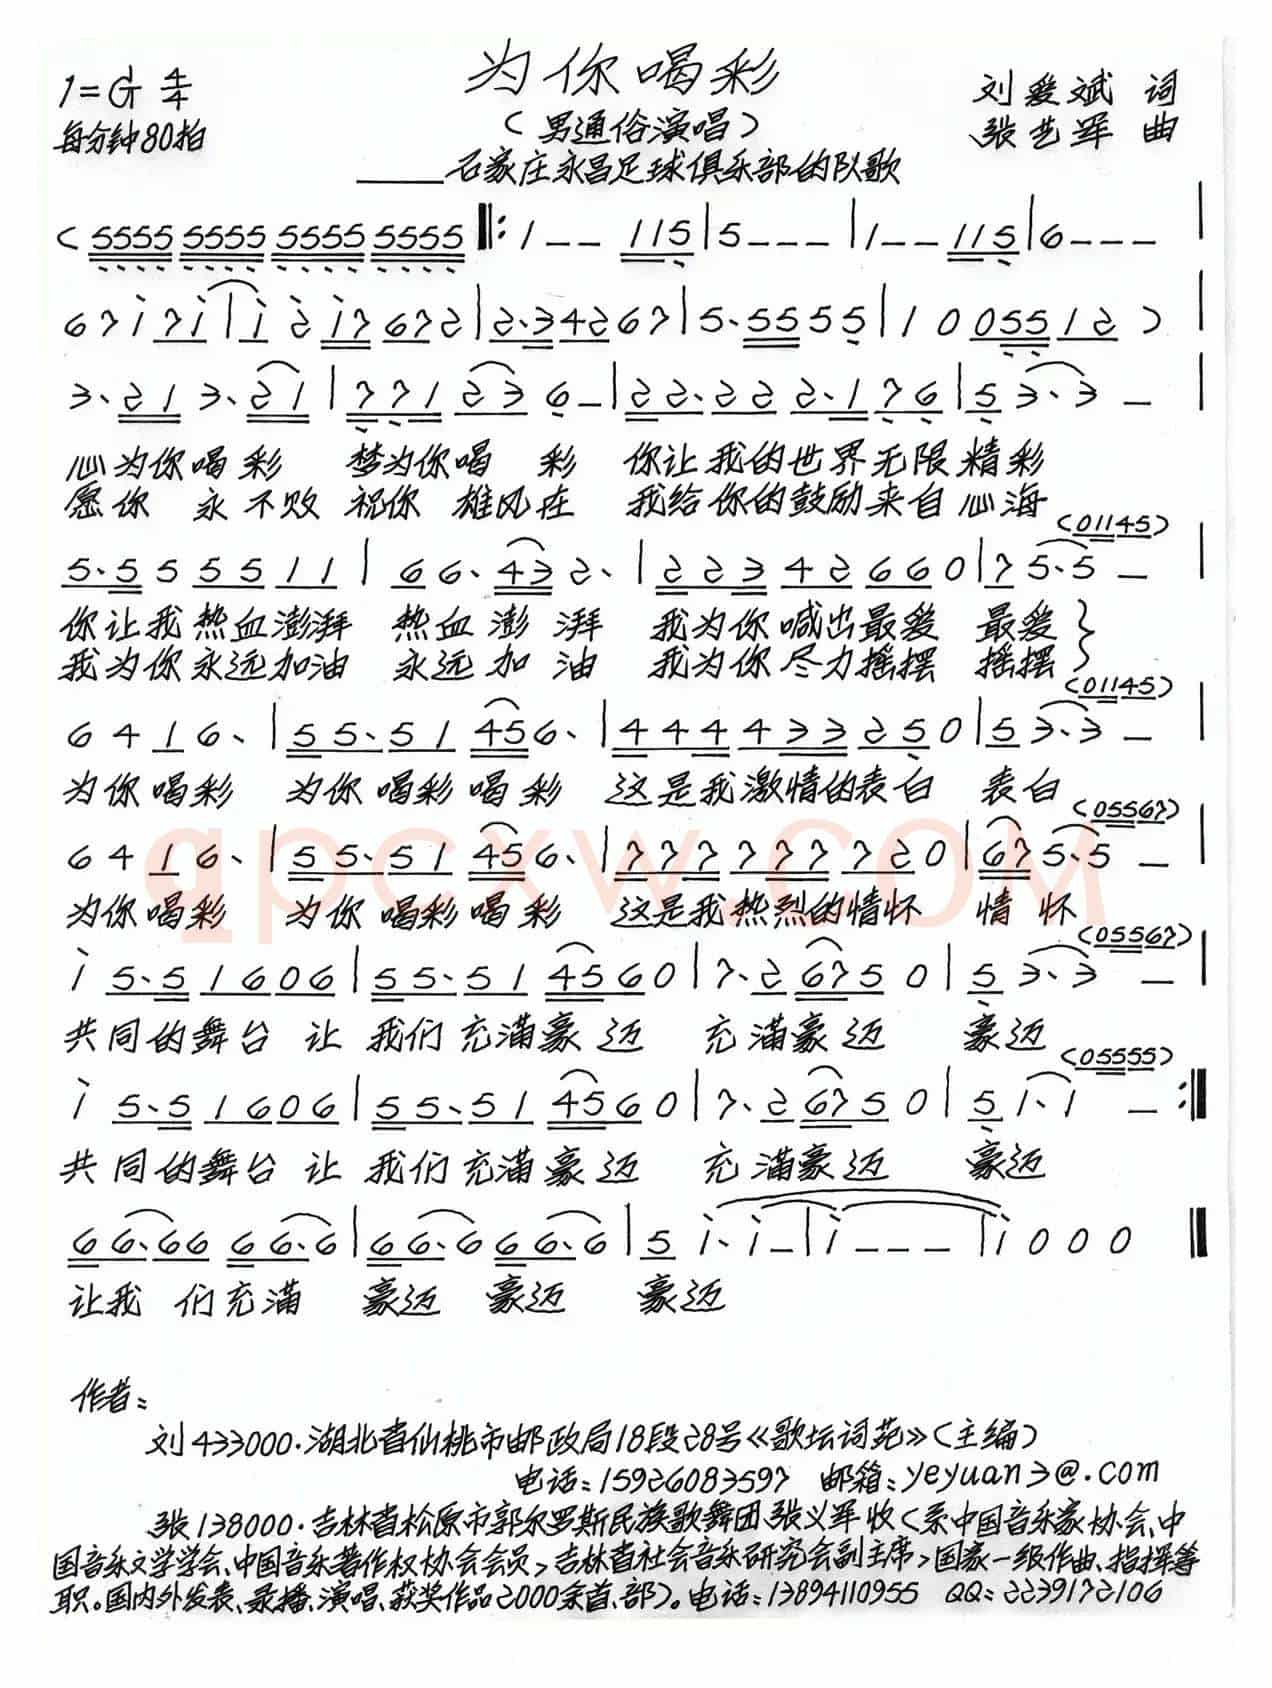 为你喝彩
1=G 4/4
(男通俗演唱)
刘爱斌 词
每分钟80拍
张艺军 曲
——石家庄永昌足球俱乐部的队歌
(5555 5555 5555 5555 ‖: 1 - - 115 | 5 - - - | 1 - - 115 | 6 - - - |
6 7 i 7i | i 2 i7 672 | 2·342 6 7 | 5·555 5 5 | 1 0 055 12 ) |
3·21 3·21 | 771 23 6 - | 22·2 22 2·1 76 | 5 3·3 - |
心为你喝彩 梦为你喝 彩 你让我的世界无限精彩
愿你 永不败 祝你 雄风在 我给你的鼓励来自心海
(01145)
5·5 5 5 5 1 1 | 6 6·43 2· | 2 2 3 4 2 6 6 0 | 7 5·5 - |
你让我热血澎湃 热血澎湃 我为你喊出最爱 最爱}
我为你永远加油 永远加油 我为你尽力摇摆 摇摆}
(01145)
6 4 1 6· | 5 5·5 1 45 6· | 4 4 4 4 3 3 2 5 0 | 5 3·3 - |
为你喝彩 为你喝彩喝彩 这是我激情的表白 表白
(05567)
6 4 1 6· | 5 5·5 1 45 6· | 7 7 7 7 7 7 7 7 2 0 | 67 5·5 - |
为你喝彩 为你喝彩喝彩 这是我热烈的情怀 情怀
(05567)
i 5·5 1 6 0 6 | 5 5·5 1 45 6 0 | 7·2 67 5 0 | 5 3·3 - |
共同的舞台 让 我们充满豪迈 充满豪迈 豪迈
(05555)
i 5·5 1 6 0 6 | 5 5·5 1 45 6 0 | 7·2 67 5 0 | 5 1·1 - :‖
共同的舞台 让 我们充满豪迈 充满豪迈 豪迈
6 6·6 6 6 6·6 | 6 6·6 6 6·6 | 5 i·i - | i - - - | i 0 0 0 ‖
让我 们充满 豪迈 豪迈 豪迈
作者:
刘433000·湖北省仙桃市邮政局18段28号《歌坛词苑》(主编)
电话:15926083597 邮箱:yeyuan3@.com
张138000·吉林省松原市郭尔罗斯民族歌舞团张义军收(系中国音乐家协会、中
国音乐文学学会、中国音乐著作权协会会员>吉林省社会音乐研究会副主席>国家一级作曲、指挥等
职。国内外发表、录播、演唱、获奖作品2000余首、部)。电话:13894110955 QQ:2239172106
qpcxw.com